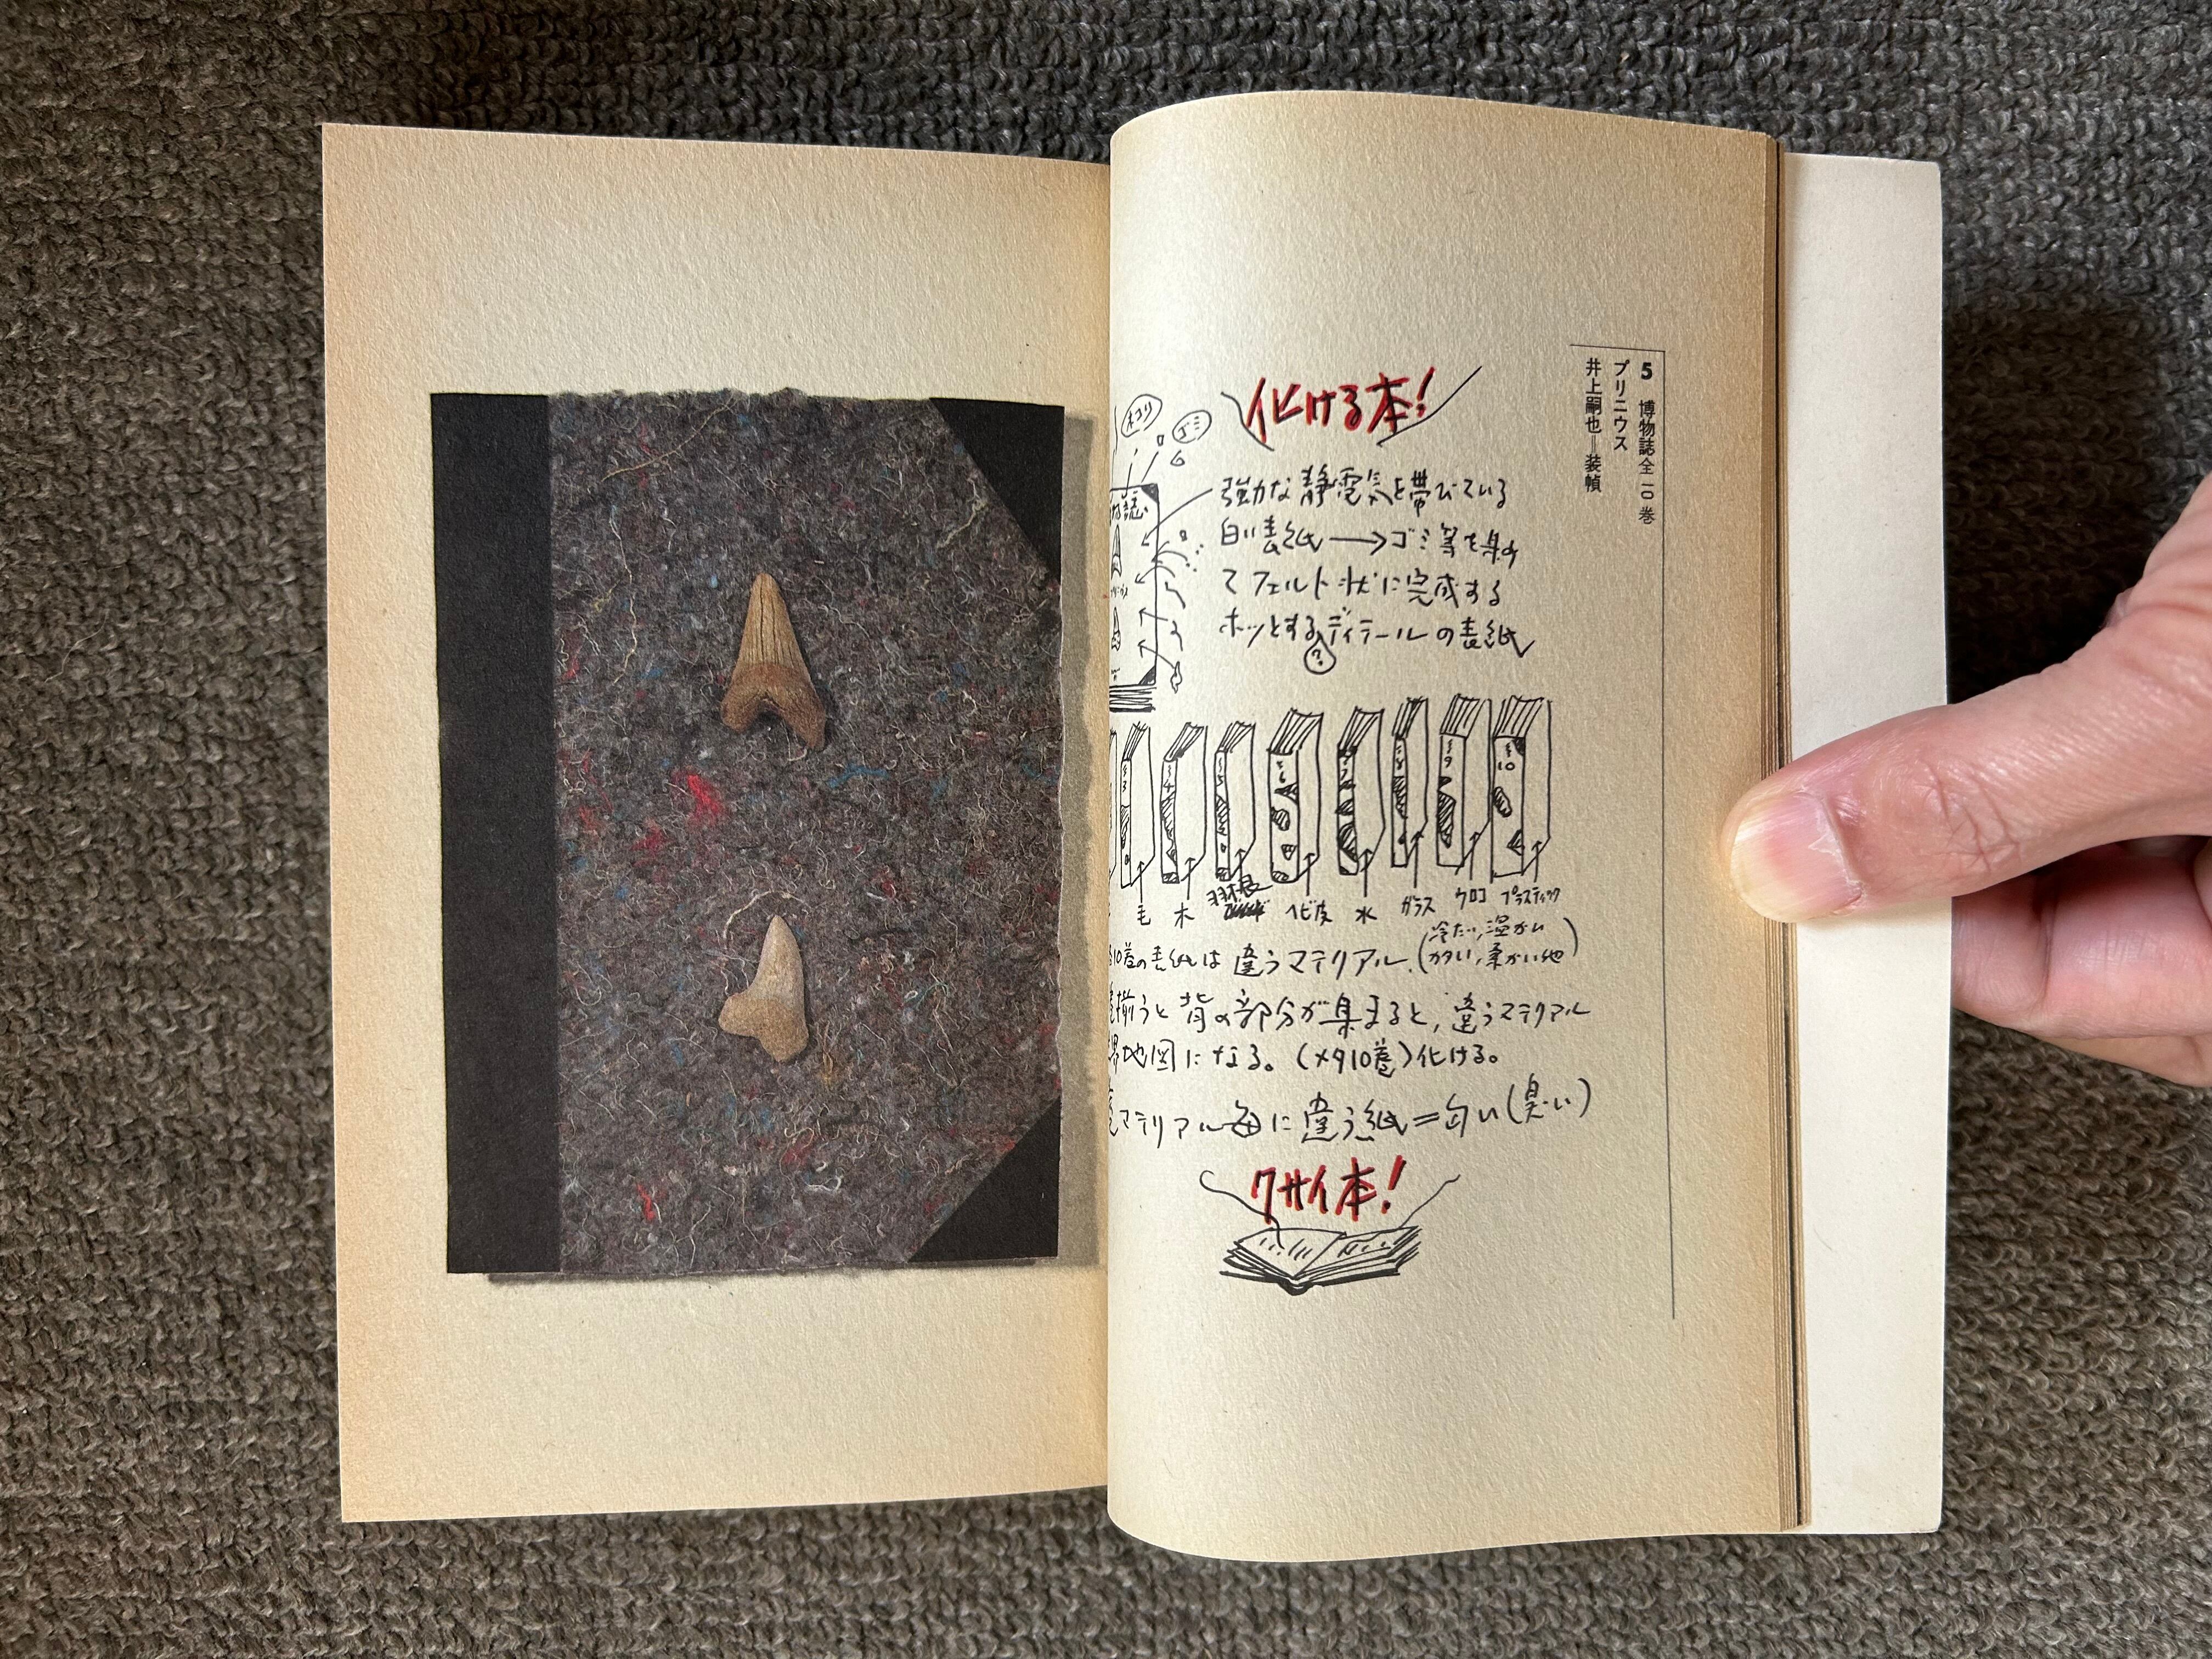 5 博物誌全一〇巻
プリニウス
井上嗣也=装幀
化ける本!
ホコリ
ゴミ
誌
強力な静電気を帯びている
白い表紙→ゴミ等を集め
てフェルト状に完成する
ホッとするディテールの表紙
?
3 4 5 6 7 8 9 10
毛 木 羽根 ヘビ皮 水 ガラス ウロコ プラスティック
10巻の表紙は違うマテリアル.(冷たい,温かい
カタい,柔かい他)
揃うと背の部分が集まると,違うマテリアル
界地図になる。(メタ10巻)化ける。
マテリアル毎に違う紙=匂い(臭い)
クサイ本!